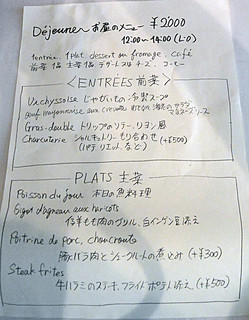 Déjeuner お昼のメニュー ¥2000
12:00~14:00 (L.O)
1entrée, 1plat, dessert ou fromage, café
前菜1品 主菜1品 デザート又はチーズ、コーヒー
<ENTRÉES 前菜>
Vichyssoise じゃがいもの冷製スープ
œuf mayonnaise aux crevettes
マヨネーズソース
Gras-double トリップのソテー リヨン風
Charcuterie シャルキュトリーもり合わせ (+¥500)
(パテ リエット、など)
PLATS 主菜
Poisson du jour 本日の魚料理
Gigot d'agneau aux haricots
仔羊もも肉のグリル、白インゲン豆添え
Poitrine de porc, choucroute
豚バラ肉とシュークルートの煮込み (+¥300)
Steak frites
牛ハラミのステーキ、フライドポテト添え (+¥500)